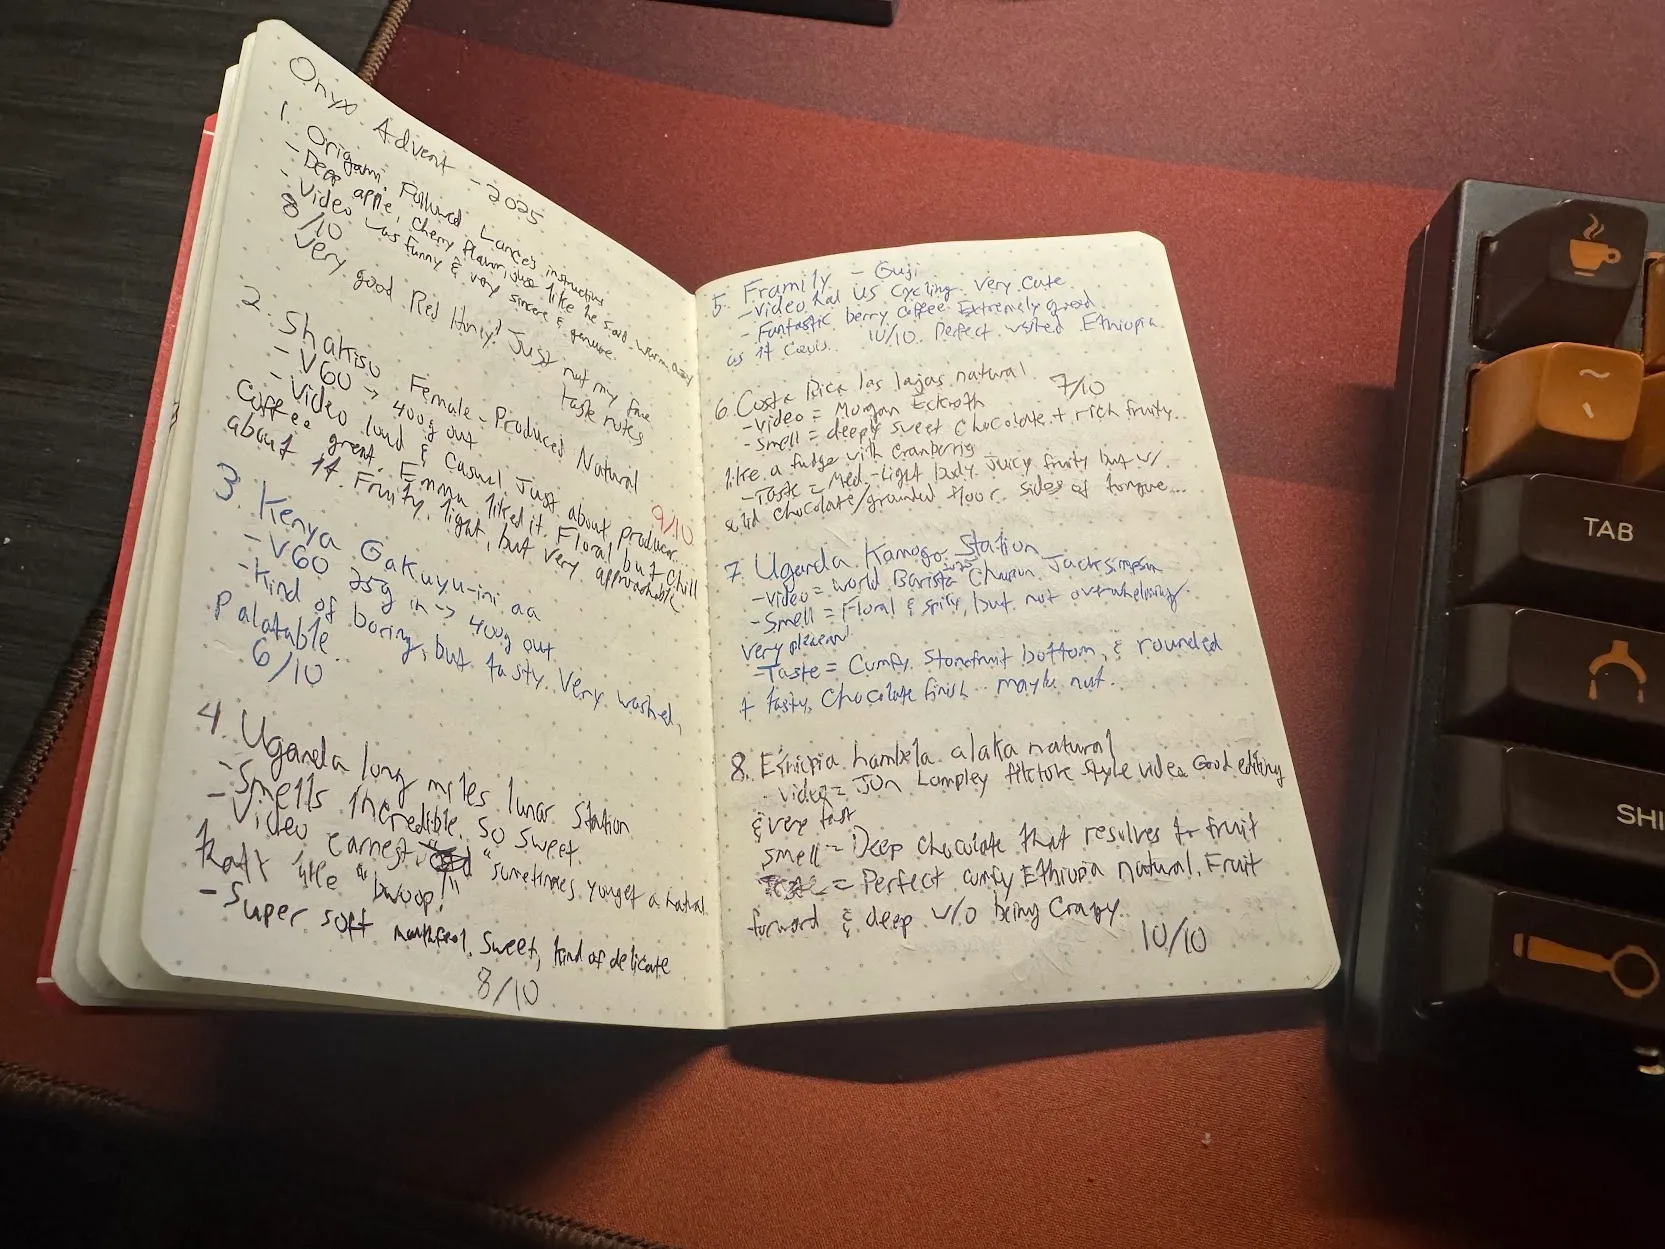 Onyx Advent - 2025
1. Origami. Followed Lance's instructions
- Deep apple, cherry flavor just like he said. warm
- Video was funny & very sincere & genuine.
8/10
Very good Red Honey! Just not my fave
taste notes
2. Shakiso Female-Produced Natural
- V60 → 400g out
- Video loud & casual just about producer...
Coffee great. Emma liked it. Floral but chill
about it. Fruity, light, but very approachable
9/10
3. Kenya Gakuyu-ini aa
- V60 25g in → 400g out
- Kind of boring, but tasty. Very washed,
Palatable.
6/10
4. Uganda long miles lunar Station
- Smells incredible. So sweet.
- Video earnest "sometimes you get a natural
that's like "bwoop!""
- Super soft mouthfeel. Sweet, kind of delicate
8/10
5. Framily - Guji
- Video had us cycling. Very cute
- Funtastic berry coffee. Extremely good
as it cools. 10/10. Perfect washed Ethiopia.
6. Costa Rica las lajas natural 7/10
- Video = Morgan Eckroth
- Smell = deeply sweet chocolate + rich fruity...
like a fudge with cranberries
- Taste = Med.-Light body. Juicy fruity but w/
solid chocolate/grounded floor. sides of tongue...
7. Uganda Kamogo Station
- Video = World Barista Champion 2025 Jack Simpson
- Smell = Floral & spicy, but not overwhelming.
very pleasant
- Taste = Comfy. Stonefruit bottom, & rounded
+ tasty, Chocolate finish.. maybe nut.
8. Ethiopia hambela alaka natural
- Video = Jon Lampley tiktok style video. Good editing
& very fast
Smell = Deep chocolate that resolves to fruit
= Perfect comfy Ethiopia natural. Fruit
forward & deep w/o being crazy.
10/10
TAB
SHI